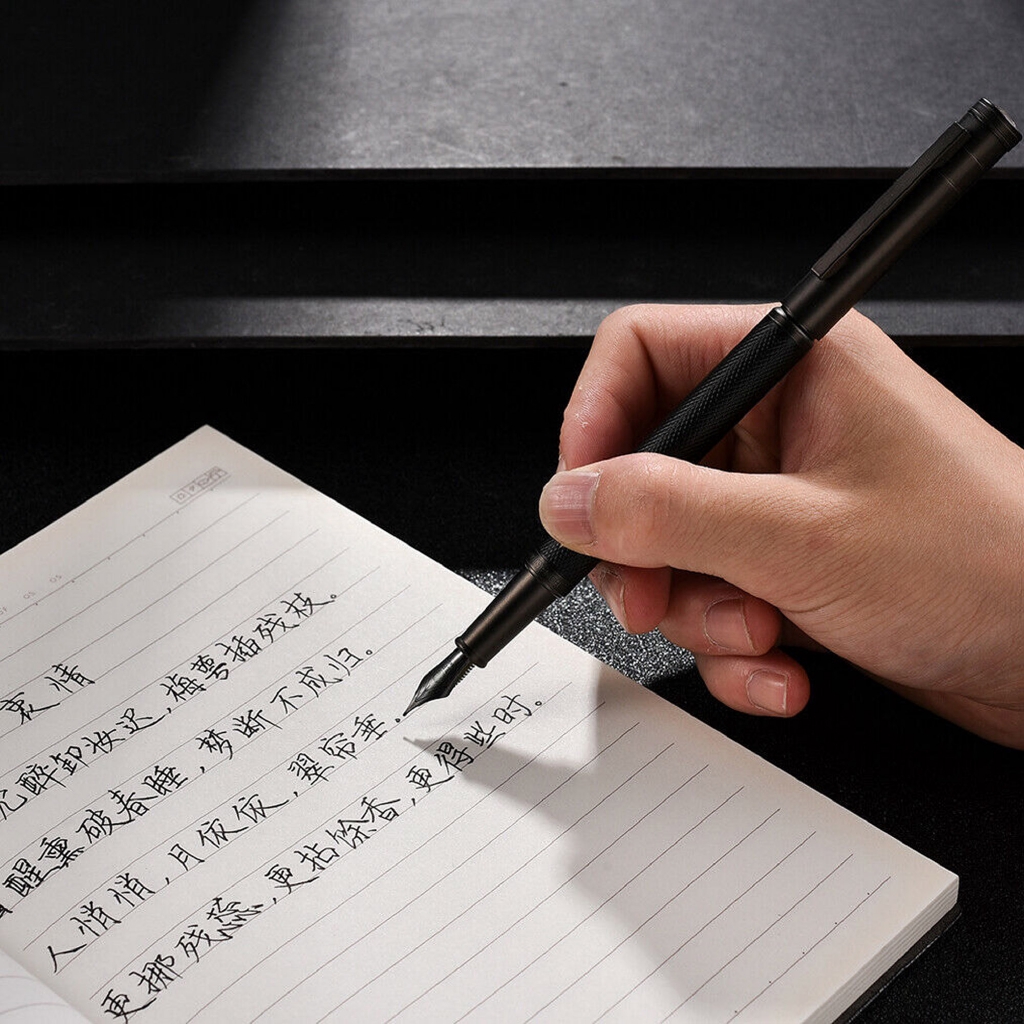 衷情
醉卸妆迟,梅萼插残枝。
醒熏破春睡,梦断不成归。
人悄悄,月依依,翠帘垂。
更挪残蕊,更拈馀香,更得些时。